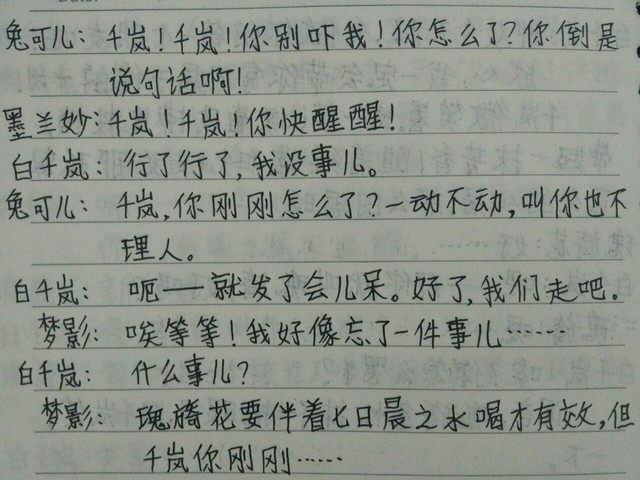 兔可儿：千岚！千岚！你别吓我！你怎么了？你倒是
说句话啊！
墨兰妙：千岚！千岚！你快醒醒！
白千岚：行了行了，我没事儿。
兔可儿：千岚，你刚刚怎么了？一动不动，叫你也不
理人。
白千岚：呃——就发了会儿呆。好了，我们走吧。
梦影：唉等等！我好像忘了一件事儿……
白千岚：什么事儿？
梦影：瑰旖花要伴着七日晨之水喝才有效，但
千岚你刚刚……